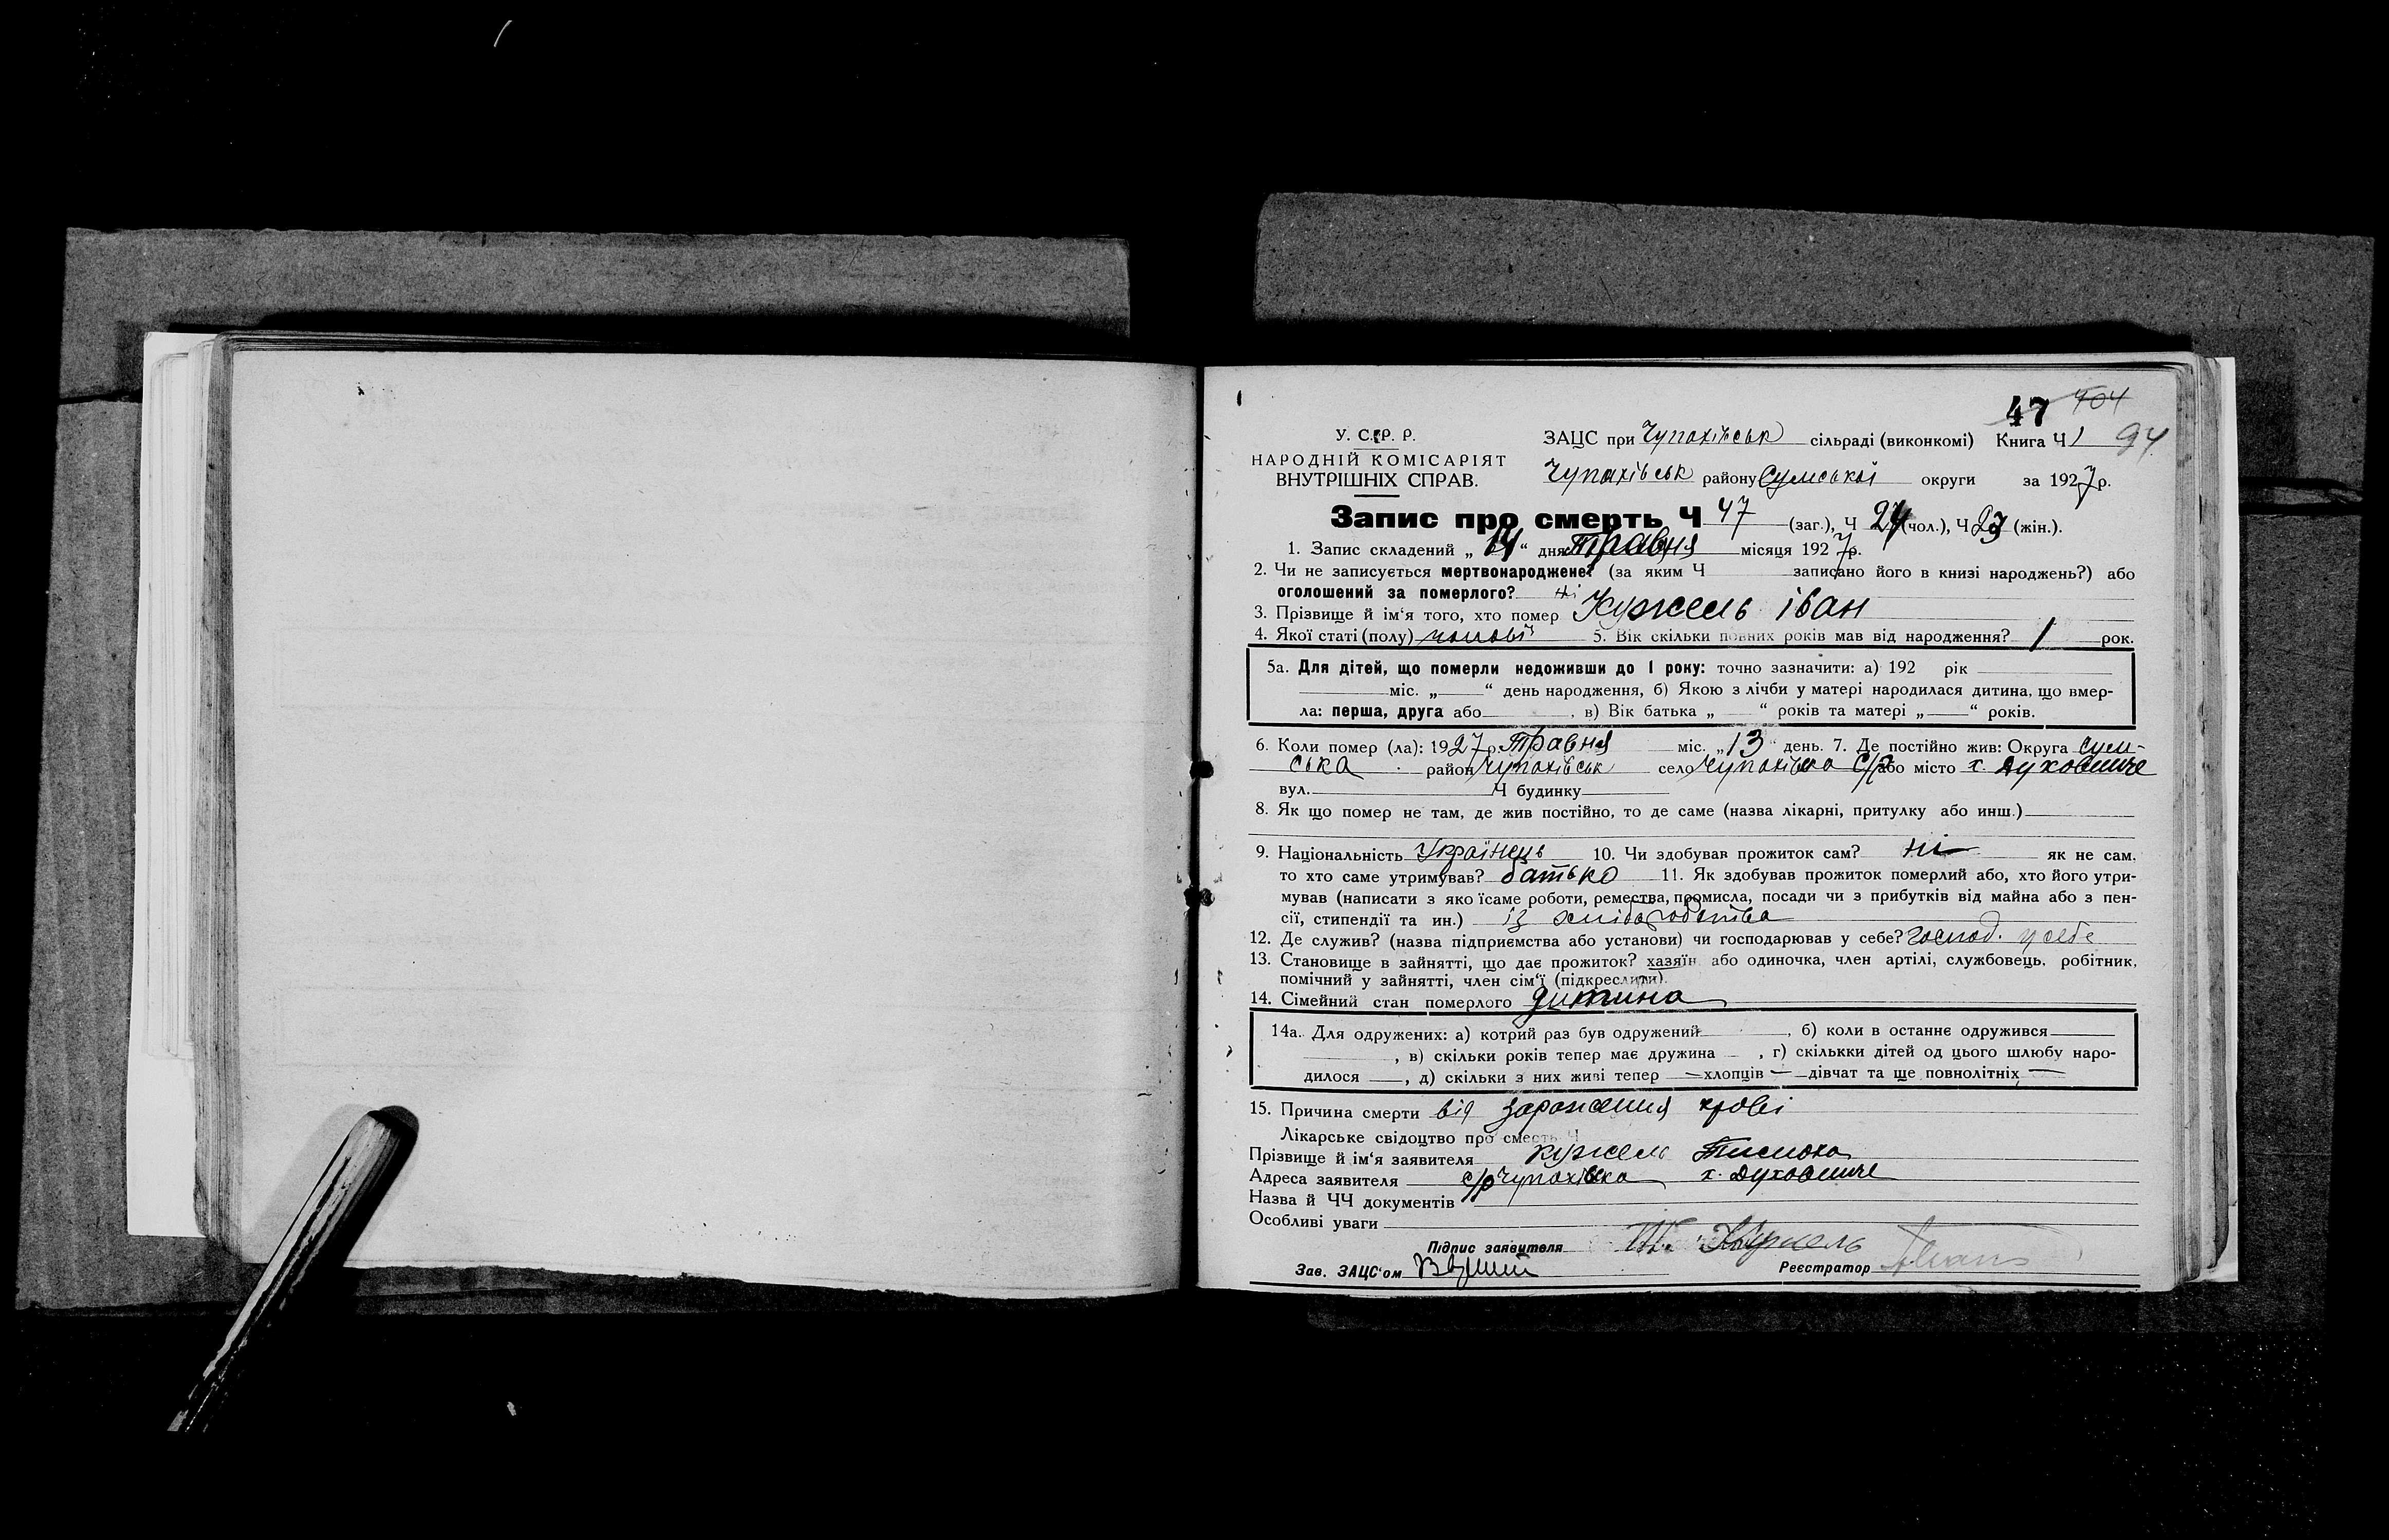 47 404
У. С. Р. Р.
НАРОДНІЙ КОМІСАРІЯТ
ВНУТРІШНІХ СПРАВ.
ЗАЦС при Чупахівськ сільраді (виконкомі) Книга Ч 1 94
Чупахівськ району Сумської округи за 1927 р.
Запис про смерть Ч 47 (заг.), Ч 24 (чол.), Ч 23 (жін.).
1. Запис складений „14“ дня Травня місяця 1927 р.
2. Чи не записується мертвонароджене? (за яким Ч записано його в книзі народжень?) або
оголошений за померлого? ні
3. Прізвище й ім‘я того, хто помер Кужель іван
4. Якої статі (полу) чолові 5. Вік скільки повних років мав від народження? 1 рок.
5а. Для дітей, що померли недоживши до 1 року: точно зазначити: а) 192 рік
міс. „ “ день народження, б) Якою з лічби у матері народилася дитина, що вмер-
ла: перша, друга або , в) Вік батька „ “ років та матері „ “ років.
6. Коли помер (ла): 1927 р. Травня міс. „13“ день. 7. Де постійно жив: Округа Сум-
ська район Чупахівськ село Чупахівка С/р або місто х. Духовниче
вул. Ч будинку
8. Як що помер не там, де жив постійно, то де саме (назва лікарні, притулку або инш.)
9. Національність Українець 10. Чи здобував прожиток сам? ні як не сам,
то хто саме утримував? батько 11. Як здобував прожиток померлий або, хто його утри-
мував (написати з яко їсаме роботи, ремества, промисла, посади чи з прибутків від майна або з пен-
сії, стипендії та ин.) із хліборобства
12. Де служив? (назва підприємства або установи) чи господарював у себе? Господ. у себе
13. Становище в зайнятті, що дає прожиток? хазяїн або одиночка, член артілі, службовець, робітник,
помічний у зайнятті, член сім‘ї (підкреслити).
14. Сімейний стан померлого дитина
14а. Для одружених: а) котрий раз був одружений , б) коли в останнє одружився
, в) скільки років тепер має дружина , г) скількки дітей од цього шлюбу наро-
дилося , д) скільки з них живі тепер — хлопців — дівчат та ще повнолітніх —
15. Причина смерти від зараження крові
Лікарське свідоцтво про смерть Ч
Прізвище й ім‘я заявителя кужель
Адреса заявителя с/р Чупахівка х. Духовниче
Назва й ЧЧ документів
Особливі уваги
Підпис заявителя Т. Кужель
Зав. ЗАЦС‘ом Реєстратор